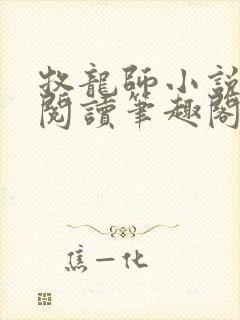 牧龍師小說
閱讀筆趣閣
焦一化